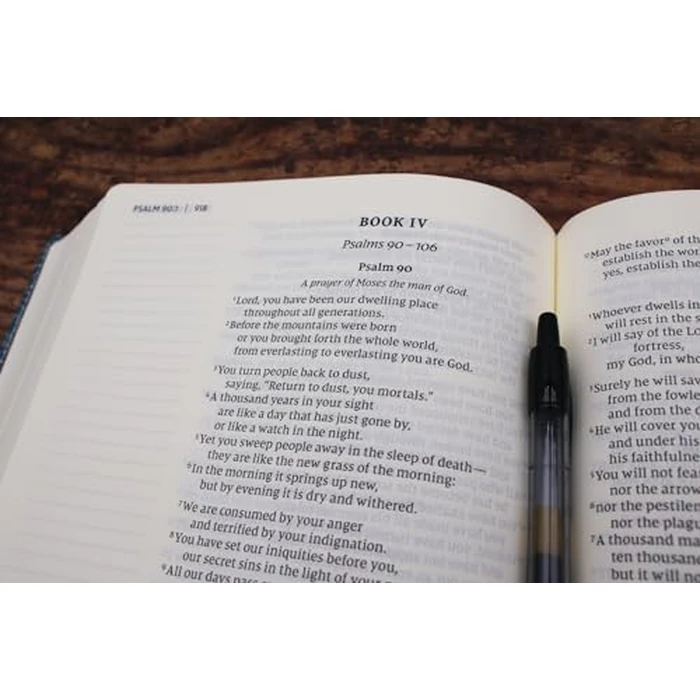 PSALM 90:1 | 918
BOOK IV
Psalms 90–106
Psalm 90
A prayer of Moses the man of God.
¹Lord, you have been our dwelling place
throughout all generations.
²Before the mountains were born
or you brought forth the whole world,
from everlasting to everlasting you are God.
³You turn people back to dust,
saying, “Return to dust, you mortals.”
⁴A thousand years in your sight
are like a day that has just gone by,
or like a watch in the night.
⁵Yet you sweep people away in the sleep of death—
they are like the new grass of the morning:
⁶In the morning it springs up new,
but by evening it is dry and withered.
⁷We are consumed by your anger
and terrified by your indignation.
⁸You have set our iniquities before you,
our secret sins in the light of your
⁹All our days pass
May the favor of
establish the
yes, establish the
¹Whoever dwells in
will rest in the
²I will say of the
fortress,
my God, in
³Surely he will
from the
and from the
⁴He will cover
and under his
his
⁵You will not
nor the
⁶nor the
nor the
⁷A thousand
ten
but it will